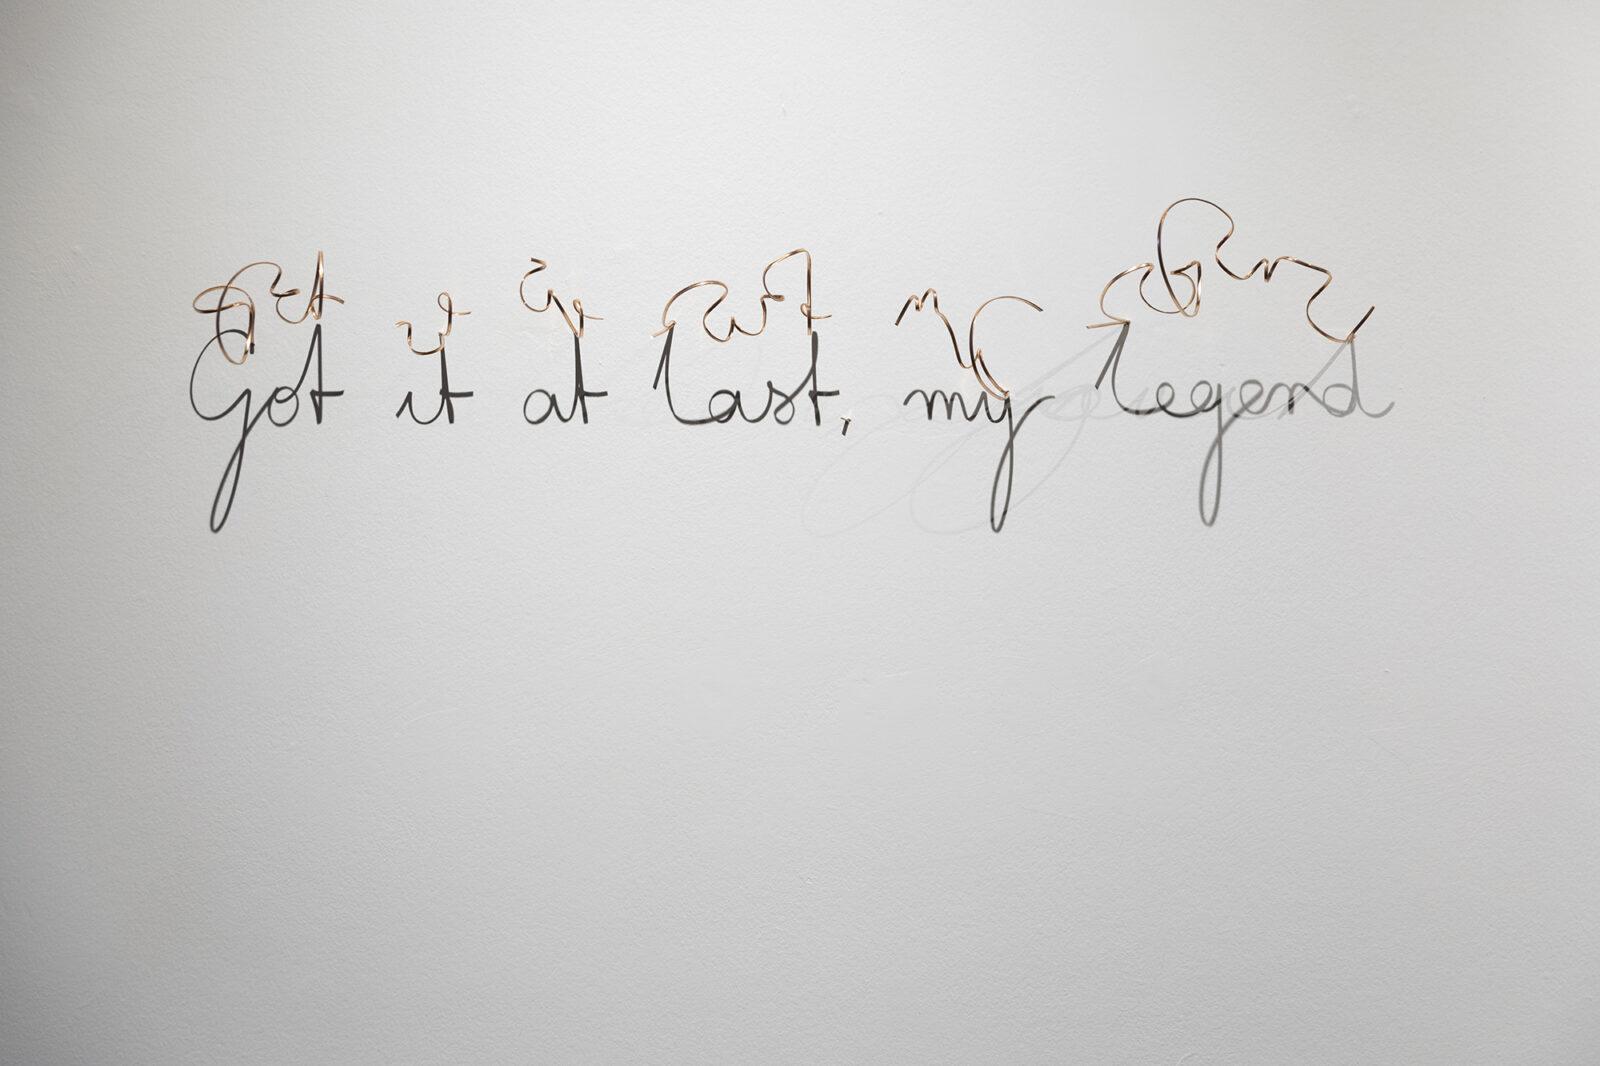 Got it at last, my legend